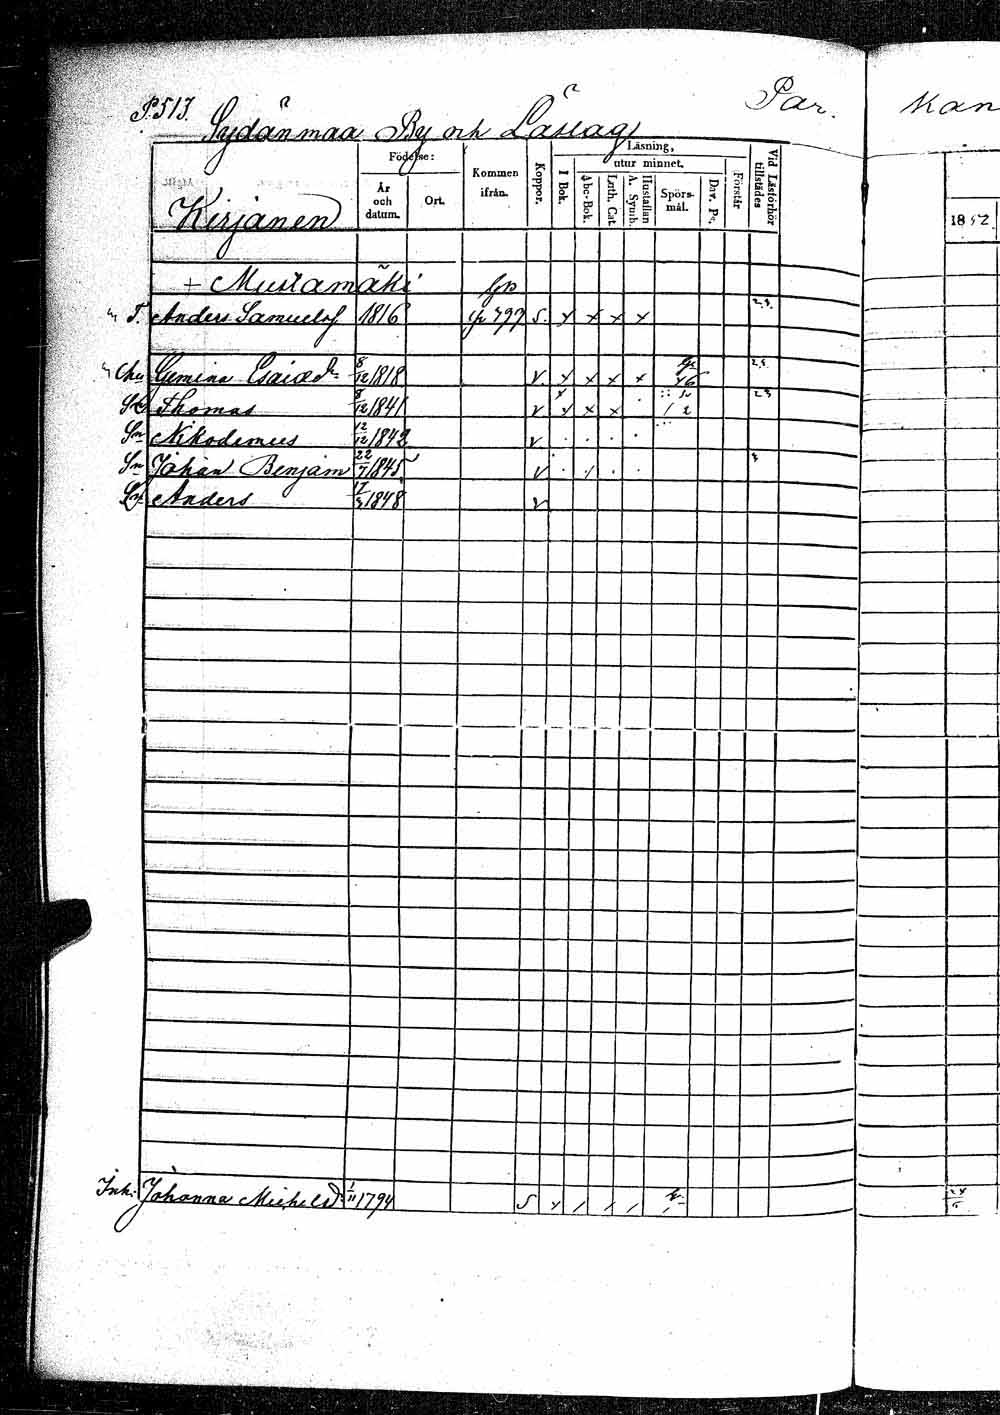 P. 513.
Sydänmaa By och Läslag
Par. Kan
Födelse: Kommen ifrån. Koppor. Läsning, Vid Läsförhör tillstädes
I Bok. utur minnet. Förstår
År och datum. Ort. Abc-Bok. Luth. Cat. Hustaflan A. Symb. Spörs-mål. Dav. Ps.
1852
Kirjanen
+ Mustamäki
T. Anders Samuelsf 1816 797 S. x x x x 2,3.
Hu Gemina Esaiæ dr 8/12 1818 v. x x x x 2,3
Sn Thomas 8/12 1841 v x x x 2 3
Sn Nikodemus 12/12 1842 v . . . .
Sn Johan Benjam 22/7 1845 v . / . .
Sn Anders 17/3 1848 v
Inh: Johanna Michelsd: 1/11 1794 S x / / /